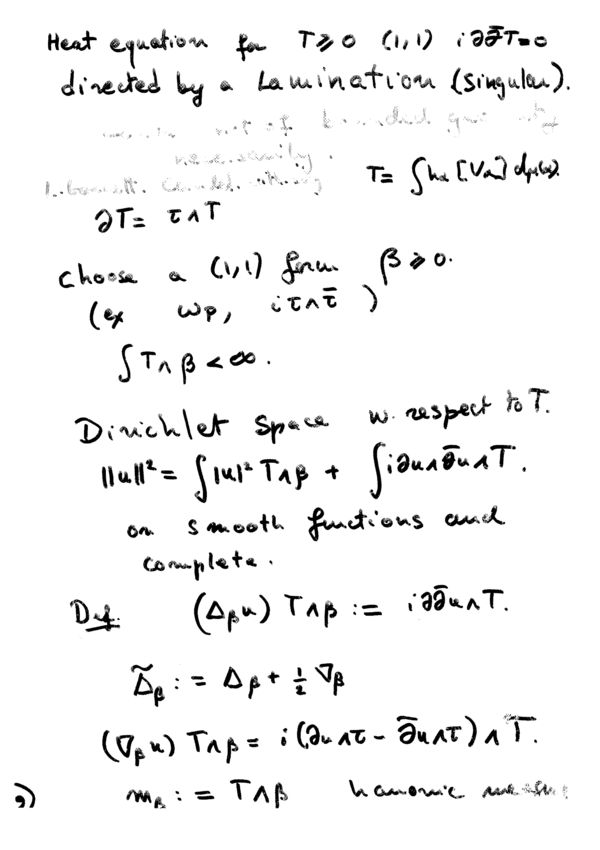 Heat equation for T ≥ 0 (1,1) i∂∂̄T=0
directed by a Lamination (singular).
not of
necessarily.
T = ∫ hα [Vα] dμ(α).
∂T = τ∧T
choose a (1,1) form β ≥ 0.
(ex ωP, iτ∧τ̄ )
∫ T∧β < ∞.
Dirichlet Space w. respect to T.
||u||² = ∫|u|² T∧β + ∫i∂u∧∂̄u∧T.
on smooth functions and
complete.
Def. (Δβu) T∧β := i∂∂̄u∧T.
Δ̃β := Δβ + ½ ∇β
(∇βu) T∧β = i(∂u∧τ - ∂̄u∧τ)∧T.
9) mβ := T∧β harmonic measure